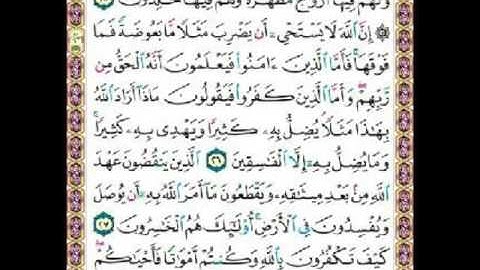 وَلَهُمْ فِيهَا أَزْوَٰجٌ مُّطَهَّرَةٌ وَهُمْ فِيهَا خَٰلِدُونَ
۞ إِنَّ ٱللَّهَ لَا يَسْتَحْىِۦٓ أَن يَضْرِبَ مَثَلًا مَّا بَعُوضَةً فَمَا
فَوْقَهَا فَأَمَّا ٱلَّذِينَ ءَامَنُوا۟ فَيَعْلَمُونَ أَنَّهُ ٱلْحَقُّ مِن
رَّبِّهِمْ وَأَمَّا ٱلَّذِينَ كَفَرُوا۟ فَيَقُولُونَ مَاذَآ أَرَادَ ٱللَّهُ
بِهَٰذَا مَثَلًا يُضِلُّ بِهِۦ كَثِيرًا وَيَهْدِى بِهِۦ كَثِيرًا
وَمَا يُضِلُّ بِهِۦٓ إِلَّا ٱلْفَٰسِقِينَ ٢٦ ٱلَّذِينَ يَنقُضُونَ عَهْدَ
ٱللَّهِ مِنۢ بَعْدِ مِيثَٰقِهِۦ وَيَقْطَعُونَ مَآ أَمَرَ ٱللَّهُ بِهِۦٓ أَن يُوصَلَ
وَيُفْسِدُونَ فِى ٱلْأَرْضِ أُو۟لَٰٓئِكَ هُمُ ٱلْخَٰسِرُونَ ٢٧
كَيْفَ تَكْفُرُونَ بِٱللَّهِ وَكُنتُمْ أَمْوَٰتًا فَأَحْيَٰكُمْ